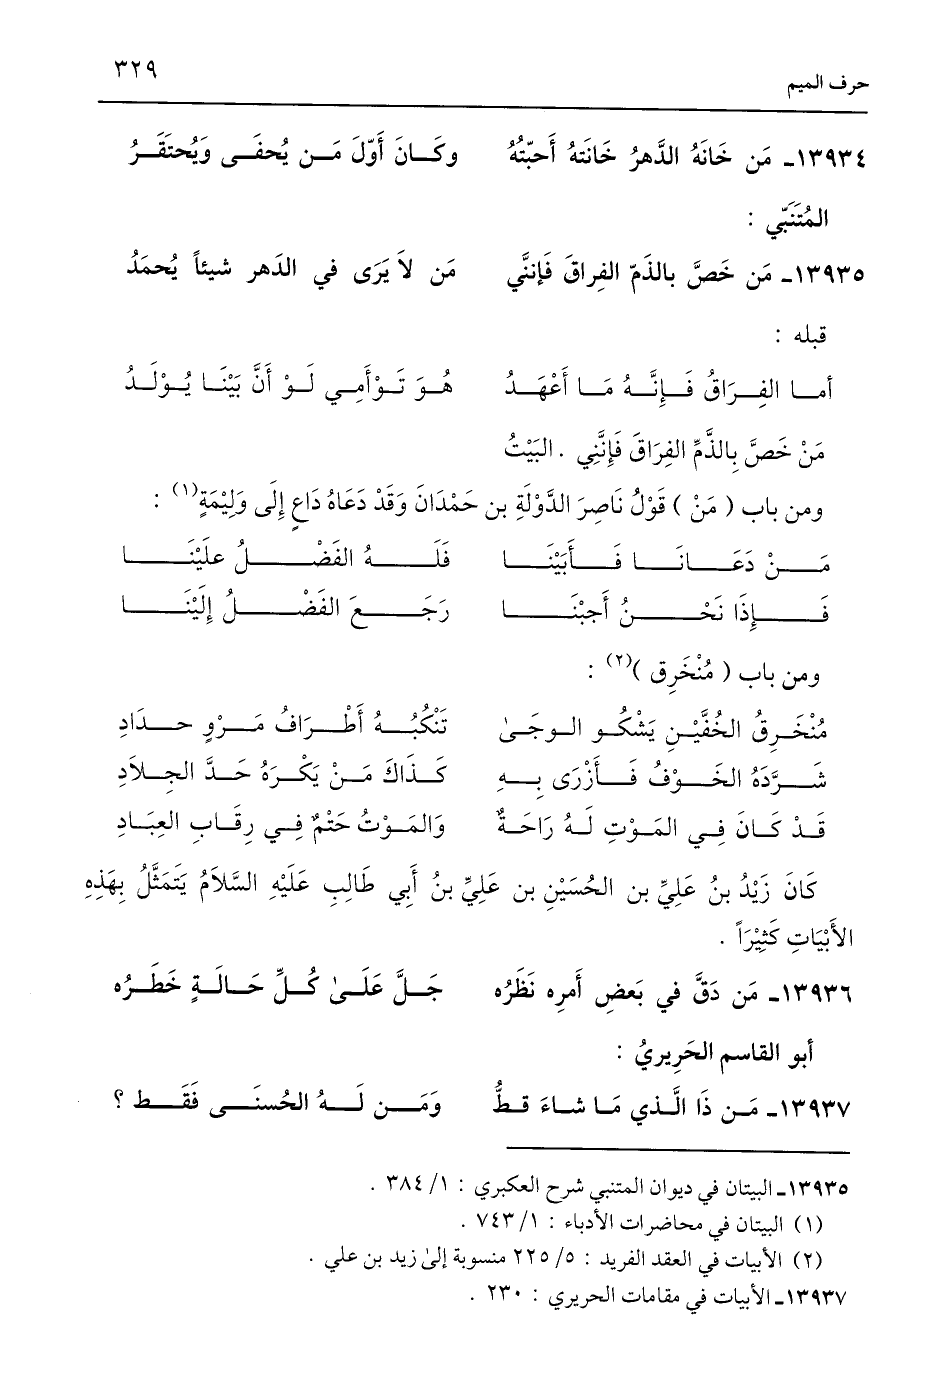 حرف الميم ٣٢٩
١٣٩٣٤ـ مَن خَانَهُ الدَّهرُ خَانَتهُ أَحبّتهُ وكَـانَ أَوّلَ مَـن يُحفَـى وَيُحتَقَـرُ
المُتَنَبّي :
١٣٩٣٥ـ مَن خَصَّ بالذَمّ الفِراقَ فَإننَّي مَن لاَ يَرَى في الدَهر شيئاً يُحمَدُ
قبله :
أمـا الفِـرَاقُ فَـإنَّـهُ مَـا أَعْهَـدُ هُـوَ تَـوْأمِـي لَـوْ أنَّ بَيْنَـا يُـوْلَـدُ
مَنْ خَصَّ بِالذَّمِّ الفِرَاقَ فَإِنَّنِي . البَيْتُ
ومن باب ( مَنْ ) قَوْلُ نَاصِرَ الدَّوْلَةِ بن حَمْدَانَ وَقَدْ دَعَاهُ دَاعٍ إِلَى وَلِيْمَةٍ(١) :
مَـنْ دَعَـانَـا فَـأَبَيْنَـا فَلَـهُ الفَضْـلُ علَيْنَـا
فَـإِذَا نَحْـنُ أَجبْنَـا رَجَـعَ الفَضْـلُ إِلَيْنَـا
ومن باب ( مُنْخَرِق )(٢) :
مُنْخَـرِقُ الخُفَّيْـنِ يَشْكُـو الـوجَـىٰ تَنْكُبُـهُ أَطْـرَافُ مَـرْوٍ حـدَادِ
شَـرَّدَهُ الخَـوْفُ فَـأَزْرَى بِـهِ كَـذَاكَ مَـنْ يَكْـرَهُ حَـدَّ الجِـلاَدِ
قَـدْ كَـانَ فِـي المَـوْتِ لَـهُ رَاحَـةٌ وَالمَـوْتُ حَتْمٌ فِـي رِقَـابِ العِبَـادِ
كَانَ زَيْدُ بنُ عَلِيِّ بن الحُسَيْنِ بن عَلِيِّ بنُ أَبِي طَالِبِ عَلَيْهِ السَّلاَمُ يَتَمَثَّلُ بِهَذِهِ
الأَبْيَاتِ كَثِيْرَاً .
١٣٩٣٦ـ مَن دَقَّ في بَعضِ أَمره نَظَرُه جَـلَّ عَلَـىٰ كُـلِّ حَـالَـةٍ خَطَـرُه
أبو القاسم الحَرِيريُ :
١٣٩٣٧ـ مَـن ذَا الَّـذي مَـا سَـاءَ قـطُّ وَمَـن لَـهُ الحُسنَـى فَقَـط ؟
١٣٩٣٥ـ البيتان في ديوان المتنبي شرح العكبري : ١/ ٣٨٤ .
(١) البيتان في محاضرات الأدباء : ١/ ٧٤٣ .
(٢) الأبيات في العقد الفريد : ٥/ ٢٢٥ منسوبة إلىٰ زيد بن علي .
١٣٩٣٧ـ الأبيات في مقامات الحريري : ٢٣٠ .